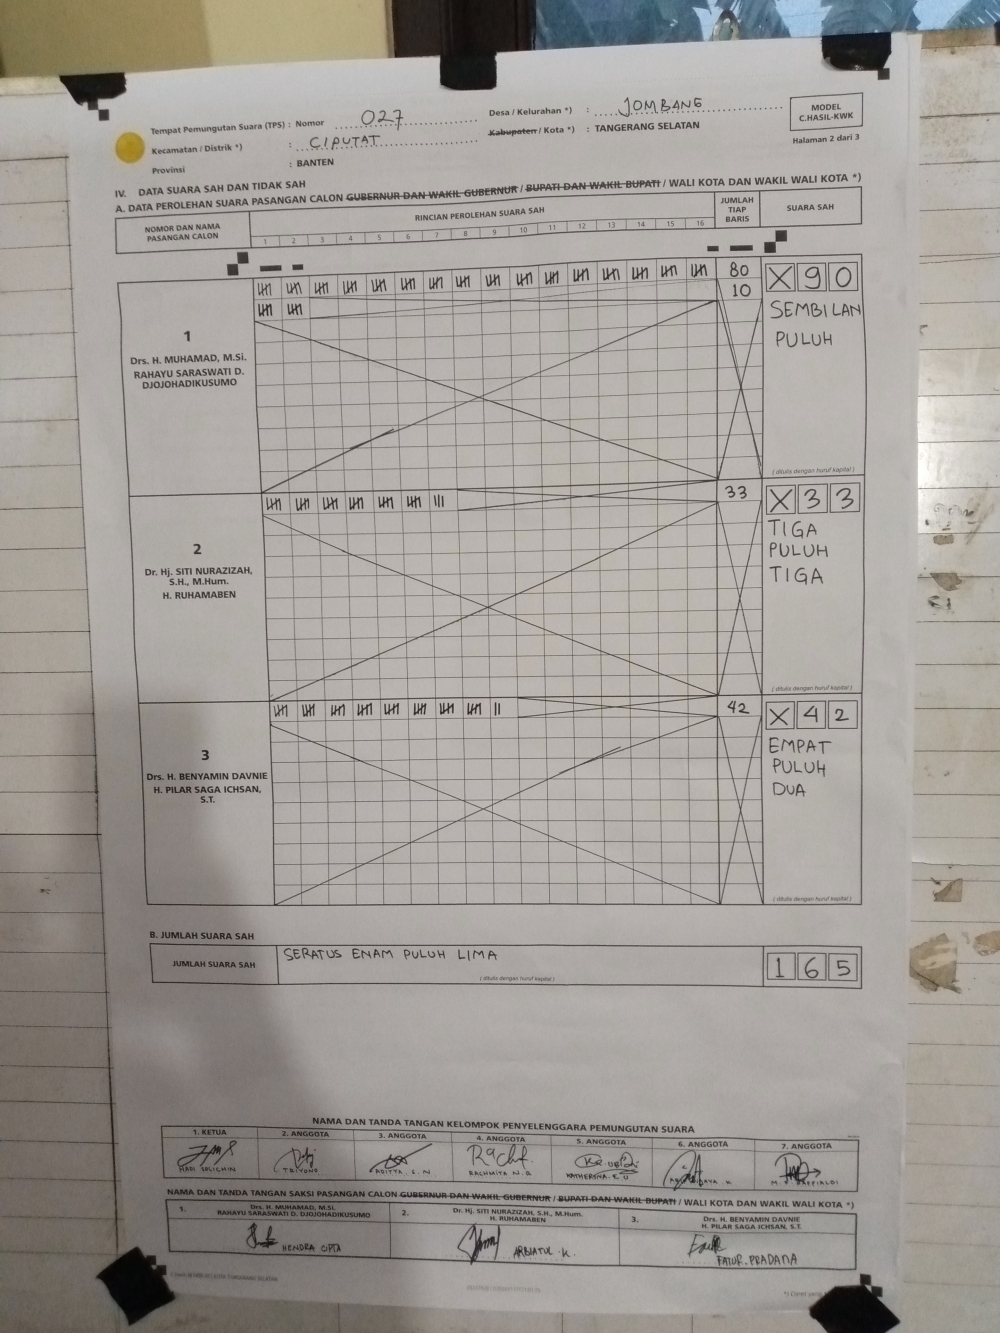 Tempat Pemungutan Suara (TPS) : Nomor 027
Kecamatan / Distrik *) : CIPUTAT
Provinsi : BANTEN
Desa / Kelurahan *) : JOMBANG
Kabupaten / Kota *) : TANGERANG SELATAN
MODEL
C.HASIL-KWK
Halaman 2 dari 3
IV. DATA SUARA SAH DAN TIDAK SAH
A. DATA PEROLEHAN SUARA PASANGAN CALON GUBERNUR DAN WAKIL GUBERNUR / BUPATI DAN WAKIL BUPATI / WALI KOTA DAN WAKIL WALI KOTA *)
NOMOR DAN NAMA
PASANGAN CALON
RINCIAN PEROLEHAN SUARA SAH
1 2 3 4 5 6 7 8 9 10 11 12 13 14 15 16
JUMLAH
TIAP
BARIS
SUARA SAH
1
Drs. H. MUHAMAD, M.Si.
RAHAYU SARASWATI D.
DJOJOHADIKUSUMO
80
10
X 9 0
SEMBILAN
PULUH
( ditulis dengan huruf kapital )
2
Dr. Hj. SITI NURAZIZAH,
S.H., M.Hum.
H. RUHAMABEN
33
X 3 3
TIGA
PULUH
TIGA
( ditulis dengan huruf kapital )
3
Drs. H. BENYAMIN DAVNIE
H. PILAR SAGA ICHSAN,
S.T.
42
X 4 2
EMPAT
PULUH
DUA
( ditulis dengan huruf kapital )
B. JUMLAH SUARA SAH
JUMLAH SUARA SAH
SERATUS ENAM PULUH LIMA
( ditulis dengan huruf kapital )
1 6 5
NAMA DAN TANDA TANGAN KELOMPOK PENYELENGGARA PEMUNGUTAN SUARA
1. KETUA
2. ANGGOTA
3. ANGGOTA
4. ANGGOTA
5. ANGGOTA
6. ANGGOTA
7. ANGGOTA
TRIYONO
NAMA DAN TANDA TANGAN SAKSI PASANGAN CALON GUBERNUR DAN WAKIL GUBERNUR / BUPATI DAN WAKIL BUPATI / WALI KOTA DAN WAKIL WALI KOTA *)
1. Drs. H. MUHAMAD, M.Si.
RAHAYU SARASWATI D. DJOJOHADIKUSUMO
HENDRA CIPTA
2. Dr. Hj. SITI NURAZIZAH, S.H., M.Hum.
H. RUHAMABEN
3. Drs. H. BENYAMIN DAVNIE
H. PILAR SAGA ICHSAN, S.T.
FATUR. PRADANA